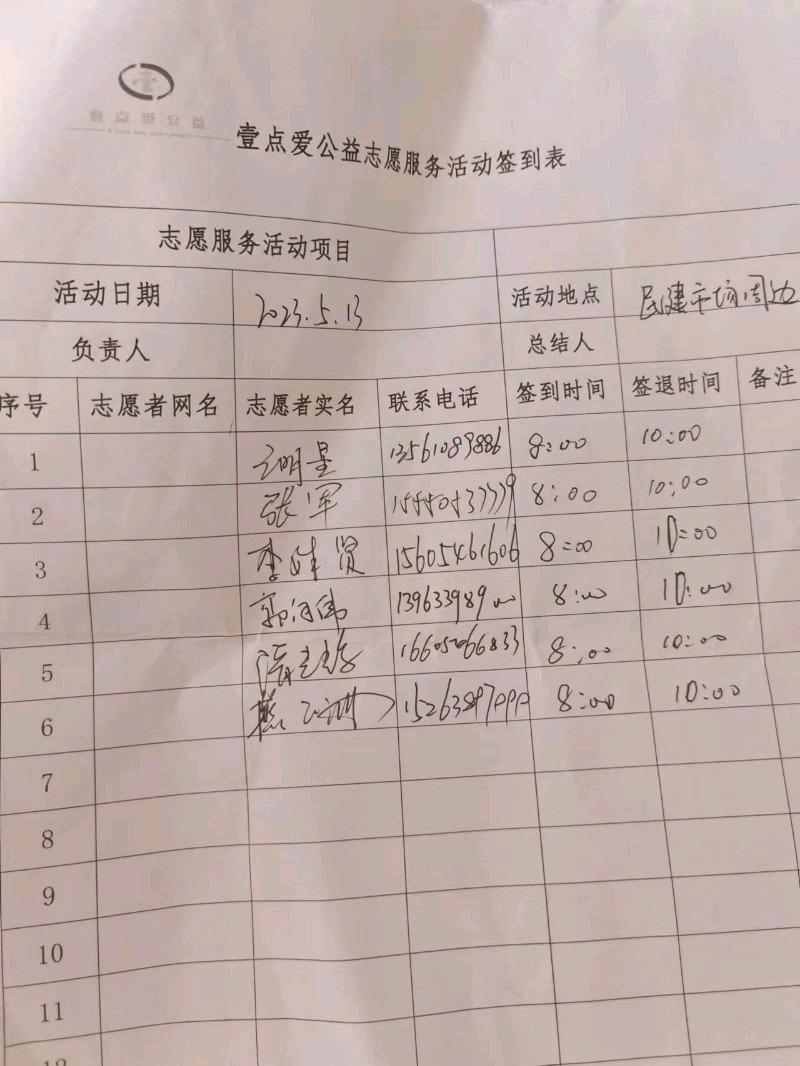 壹点爱公益
壹点爱公益志愿服务活动签到表
志愿服务活动项目
活动日期 2023.5.13 活动地点 民建市场周边
负责人 总结人
序号 志愿者网名 志愿者实名 联系电话 签到时间 签退时间 备注
1 明星 13561089886 8:00 10:00
2 张军 8:00 10:00
3 李 贤 15605461606 8:00 10:00
4 郭 伟 13963398900 8:00 10:00
5 16605066833 8:00 10:00
6 8:00 10:00
7
8
9
10
11
12